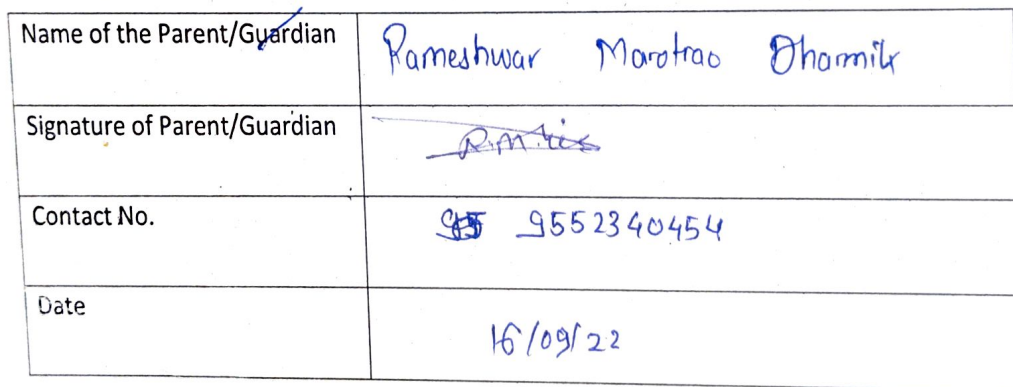 Name of the Parent/Guardian Rameshwar Marotrao Dharmik
Signature of Parent/Guardian
Contact No. 9552340454
Date 16/09/22